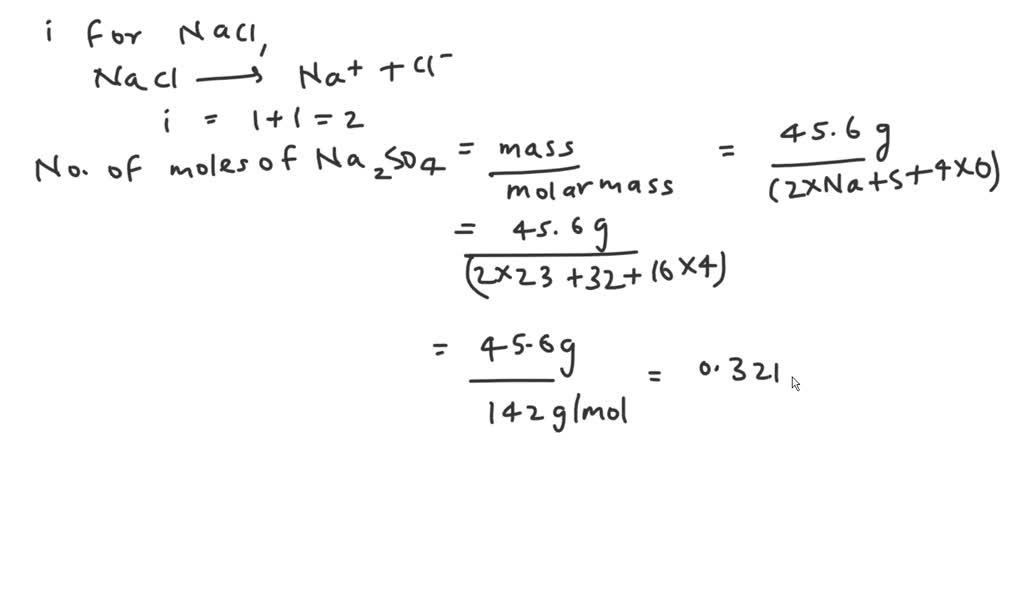 i for NaCl,
NaCl ⟶ Na⁺ + Cl⁻
i = 1+1 = 2
No. of moles of Na₂SO₄ = mass / molar mass = 45.6 g / (2×Na+S+4×O)
= 45.6 g / (2×23 +32+ 16×4)
= 45.6g / 142 g/mol = 0.321